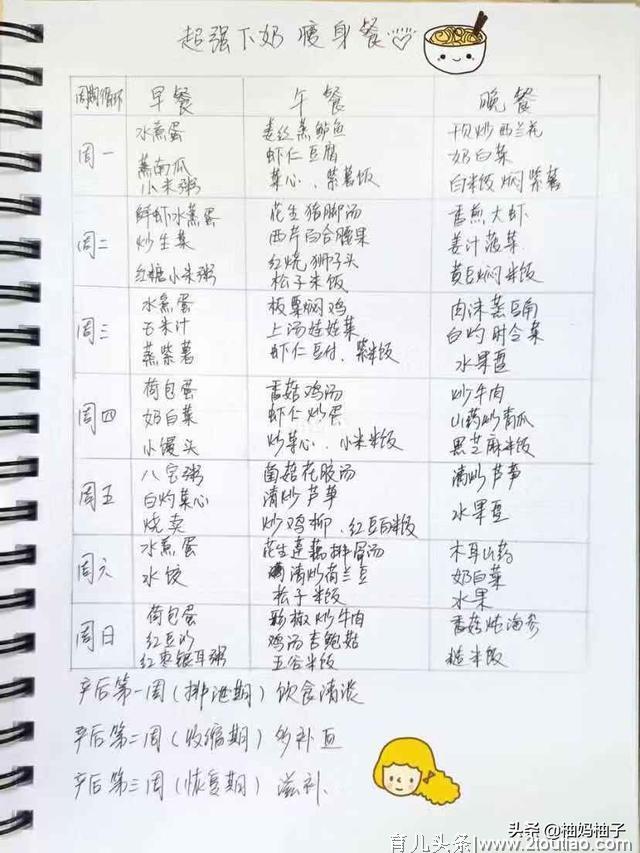 超强下奶 瘦身餐
周期循环 早餐 午餐 晚餐
周一
水煮蛋
蒸南瓜
小米粥
姜丝蒸鲈鱼
虾仁豆腐
菜心、紫薯饭
干贝炒西兰花
奶白菜
白米饭 焖紫薯
周二
鲜虾水蒸蛋
炒生菜
红糖小米粥
花生猪脚汤
西芹百合腰果
红烧狮子头
松子米饭
香煎大虾
姜汁菠菜
黄豆焖米饭
周三
水煮蛋
玉米汁
蒸紫薯
板栗焖鸡
上汤娃娃菜
虾仁豆付、紫米饭
肉沫蒸豆角
白灼时令菜
水果
周四
荷包蛋
奶白菜
小馒头
香菇鸡汤
虾仁炒蛋
炒菜心、小米米饭
炒牛肉
山药炒青瓜
黑芝麻米饭
周五
八宝粥
白灼菜心
烧卖
菌菇花胶汤
清炒芦笋
炒鸡柳、红豆白米饭
清炒芦笋
水果
周六
水煮蛋
水饺
花生莲藕排骨汤
清炒荷兰豆
松子米饭
木耳山药
奶白菜
水果
周日
荷包蛋
红豆沙
红枣银耳粥
彩椒炒牛肉
鸡汤杏鲍菇
五谷米饭
香菇炖海参
糙米饭
产后第一周(排泄期)饮食清淡
产后第二周(收缩期)多补血
产后第三周(恢复期)滋补.
头条 @柚妈柚子
育儿头条 www.21outiao.com